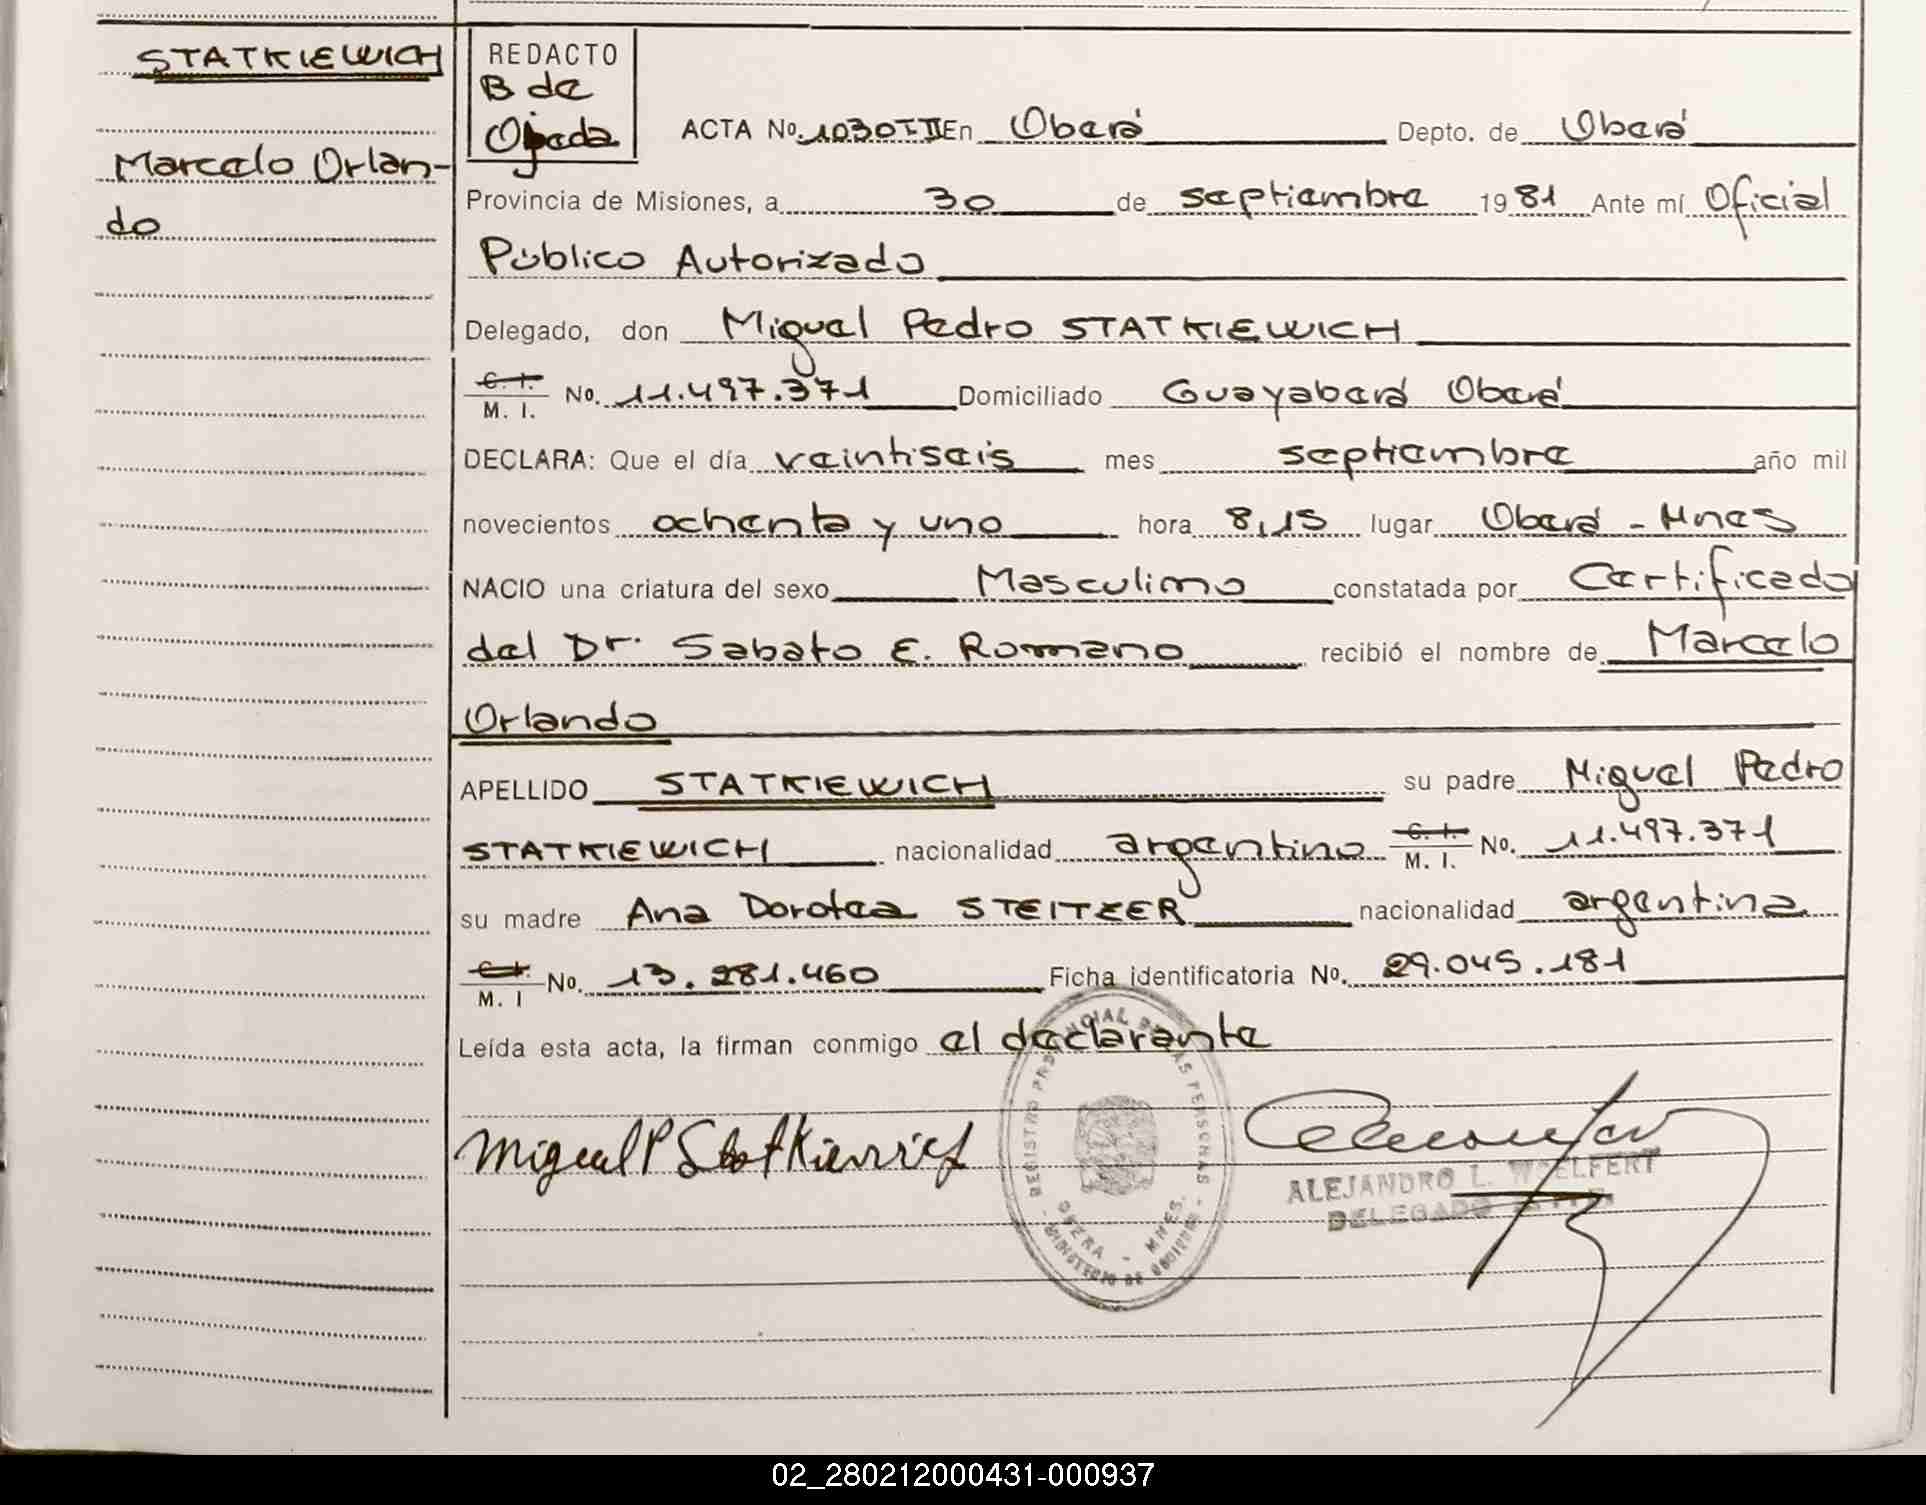 STATKIEWICH
Marcelo Orlan-
do
REDACTO
B de
Ojeda
ACTA No. 1030 T-II En Oberá Depto. de Oberá
Provincia de Misiones, a 30 de septiembre 1981 Ante mí Oficial
Público Autorizado
Delegado, don Miguel Pedro STATKIEWICH
C. I.
M. I. No. 11.497.371 Domiciliado Guayaberá Oberá
DECLARA: Que el día veintiseis mes septiembre año mil
novecientos ochenta y uno hora 8,15 lugar Oberá - Mnes
NACIO una criatura del sexo Masculino constatada por Certificado
del Dr. Sabato E. Romano recibió el nombre de Marcelo
Orlando
APELLIDO STATKIEWICH su padre Miguel Pedro
STATKIEWICH nacionalidad argentino C. I. M. I. No. 11.497.371
su madre Ana Dorotea STEITZER nacionalidad argentina
C. I.
M. I No. 13.281.460 Ficha identificatoria No. 29.045.181
Leída esta acta, la firman conmigo el declarante
Miguel P Statkiewich
REGISTRO PROVINCIAL DE LAS PERSONAS
OBERA - MNES.
MINISTERIO DE GOBIERNO
ALEJANDRO L. WOELFERT
DELEGADO
02_280212000431-000937